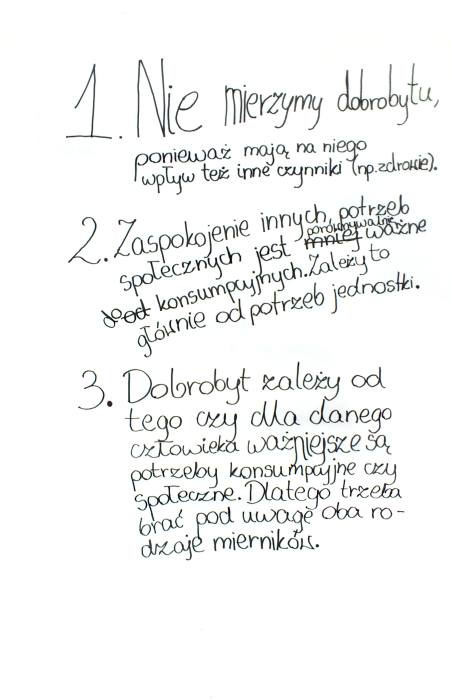 1. Nie mierzymy dobrobytu,
ponieważ mają na niego
wpływ też inne czynniki (np. zdrowie).
2. Zaspokojenie innych, potrzeb
społecznych jest mniej porównywalnie ważne
do od konsumpcyjnych. Zależy to
głównie od potrzeb jednostki.
3. Dobrobyt zależy od
tego czy dla danego
człowieka ważniejsze są
potrzeby konsumpcyjne czy
społeczne. Dlatego trzeba
brać pod uwagę oba ro-
dzaje mierników.